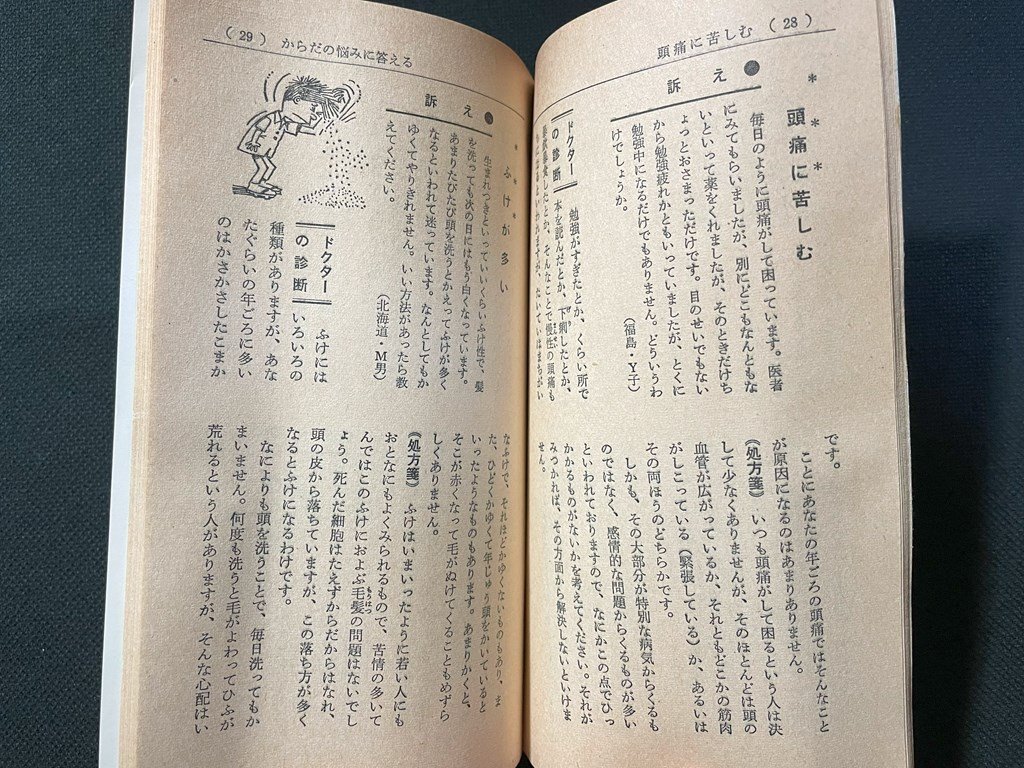 頭痛に苦しむ (28)
* * *
頭痛に苦しむ
●
訴え
毎日のように頭痛がして困っています。医者
にみてもらいましたが、別にどこもなんともな
いといって薬をくれましたが、そのときだけち
ょっとおさまっただけです。目のせいでもない
から勉強疲れかともいっていましたが、とくに
勉強中になるだけでもありません。どういうわ
けでしょうか。
(福島・Y子)
ドクター
の診断
勉強がすぎたとか、くらい所で
本を読んだとか、下痢したとか、
とか、そんなことで慢性の頭痛も
です。
ことにあなたの年ごろの頭痛ではそんなこと
が原因になるのはあまりありません。
《処方箋》 いつも頭痛がして困るという人は決
して少なくありませんが、そのほとんどは頭の
血管が広がっているか、それともどこかの筋肉
がしこっている(緊張している)か、あるいは
その両ほうのどちらかです。
しかも、その大部分が特別な病気からくるも
のではなく、感情的な問題からくるものが多い
といわれておりますので、なにかこの点でひっ
かかるものがないかを考えてください。それが
みつかれば、その方面から解決しないといけま
せん。
(29) からだの悩みに答える
* * *
ふけが多い
●
訴え
生まれつきといっていいくらいふけ性で、髪
を洗っても次の日にはもう白くなっています。
あまりたびたび頭を洗うとかえってふけが多く
なるといわれて迷っています。なんとしてもか
ゆくてやりきれません。いい方法があったら教
えてください。
(北海道・M男)
ドクター
の診断
ふけには
いろいろの
種類がありますが、あな
たぐらいの年ごろに多い
のはかさかさしたこまか
なふけで、それほどかゆくないものもあり、ま
た、ひどくかゆくて年じゅう頭をかいていると
いったようなものもあります。あまりかくと、
そこが赤くなって毛がぬけてくることもめずら
しくありません。
《処方箋》 ふけはまいったように若い人にも
おとなにもよくみられるもので、苦情の多いて
んではこのふけにおよぶ毛髪の問題はないでし
もうはつ
ょう。死んだ細胞はたえずからだからはなれ、
頭の皮から落ちていますが、この落ち方が多く
なるとふけになるわけです。
なによりも頭を洗うことで、毎日洗ってもか
まいません。何度も洗うと毛がよわってひふが
荒れるという人がありますが、そんな心配はい